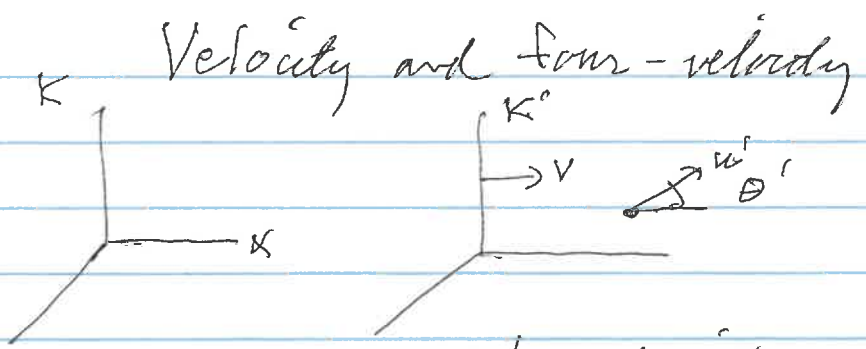 Velocity and four-velocity
K K'
V u' θ'
x